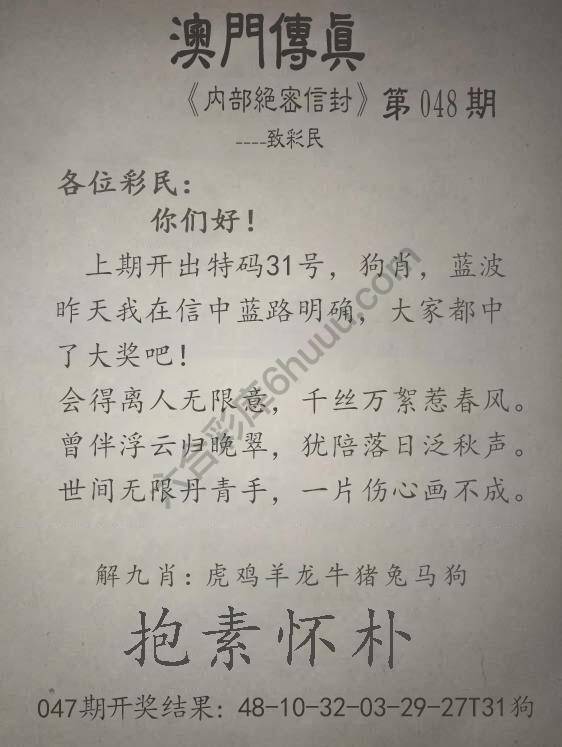 澳門傳眞
《内部絕密信封》第048期
----致彩民
各位彩民：
你们好！
上期开出特码31号，狗肖，蓝波
昨天我在信中蓝路明确，大家都中
了大奖吧！
会得离人无限意，千丝万絮惹春风。
曾伴浮云归晚翠，犹陪落日泛秋声。
世间无限丹青手，一片伤心画不成。
解九肖：虎鸡羊龙牛猪兔马狗
抱素怀朴
047期开奖结果：48-10-32-03-29-27T31狗
六合彩库6huuu.com